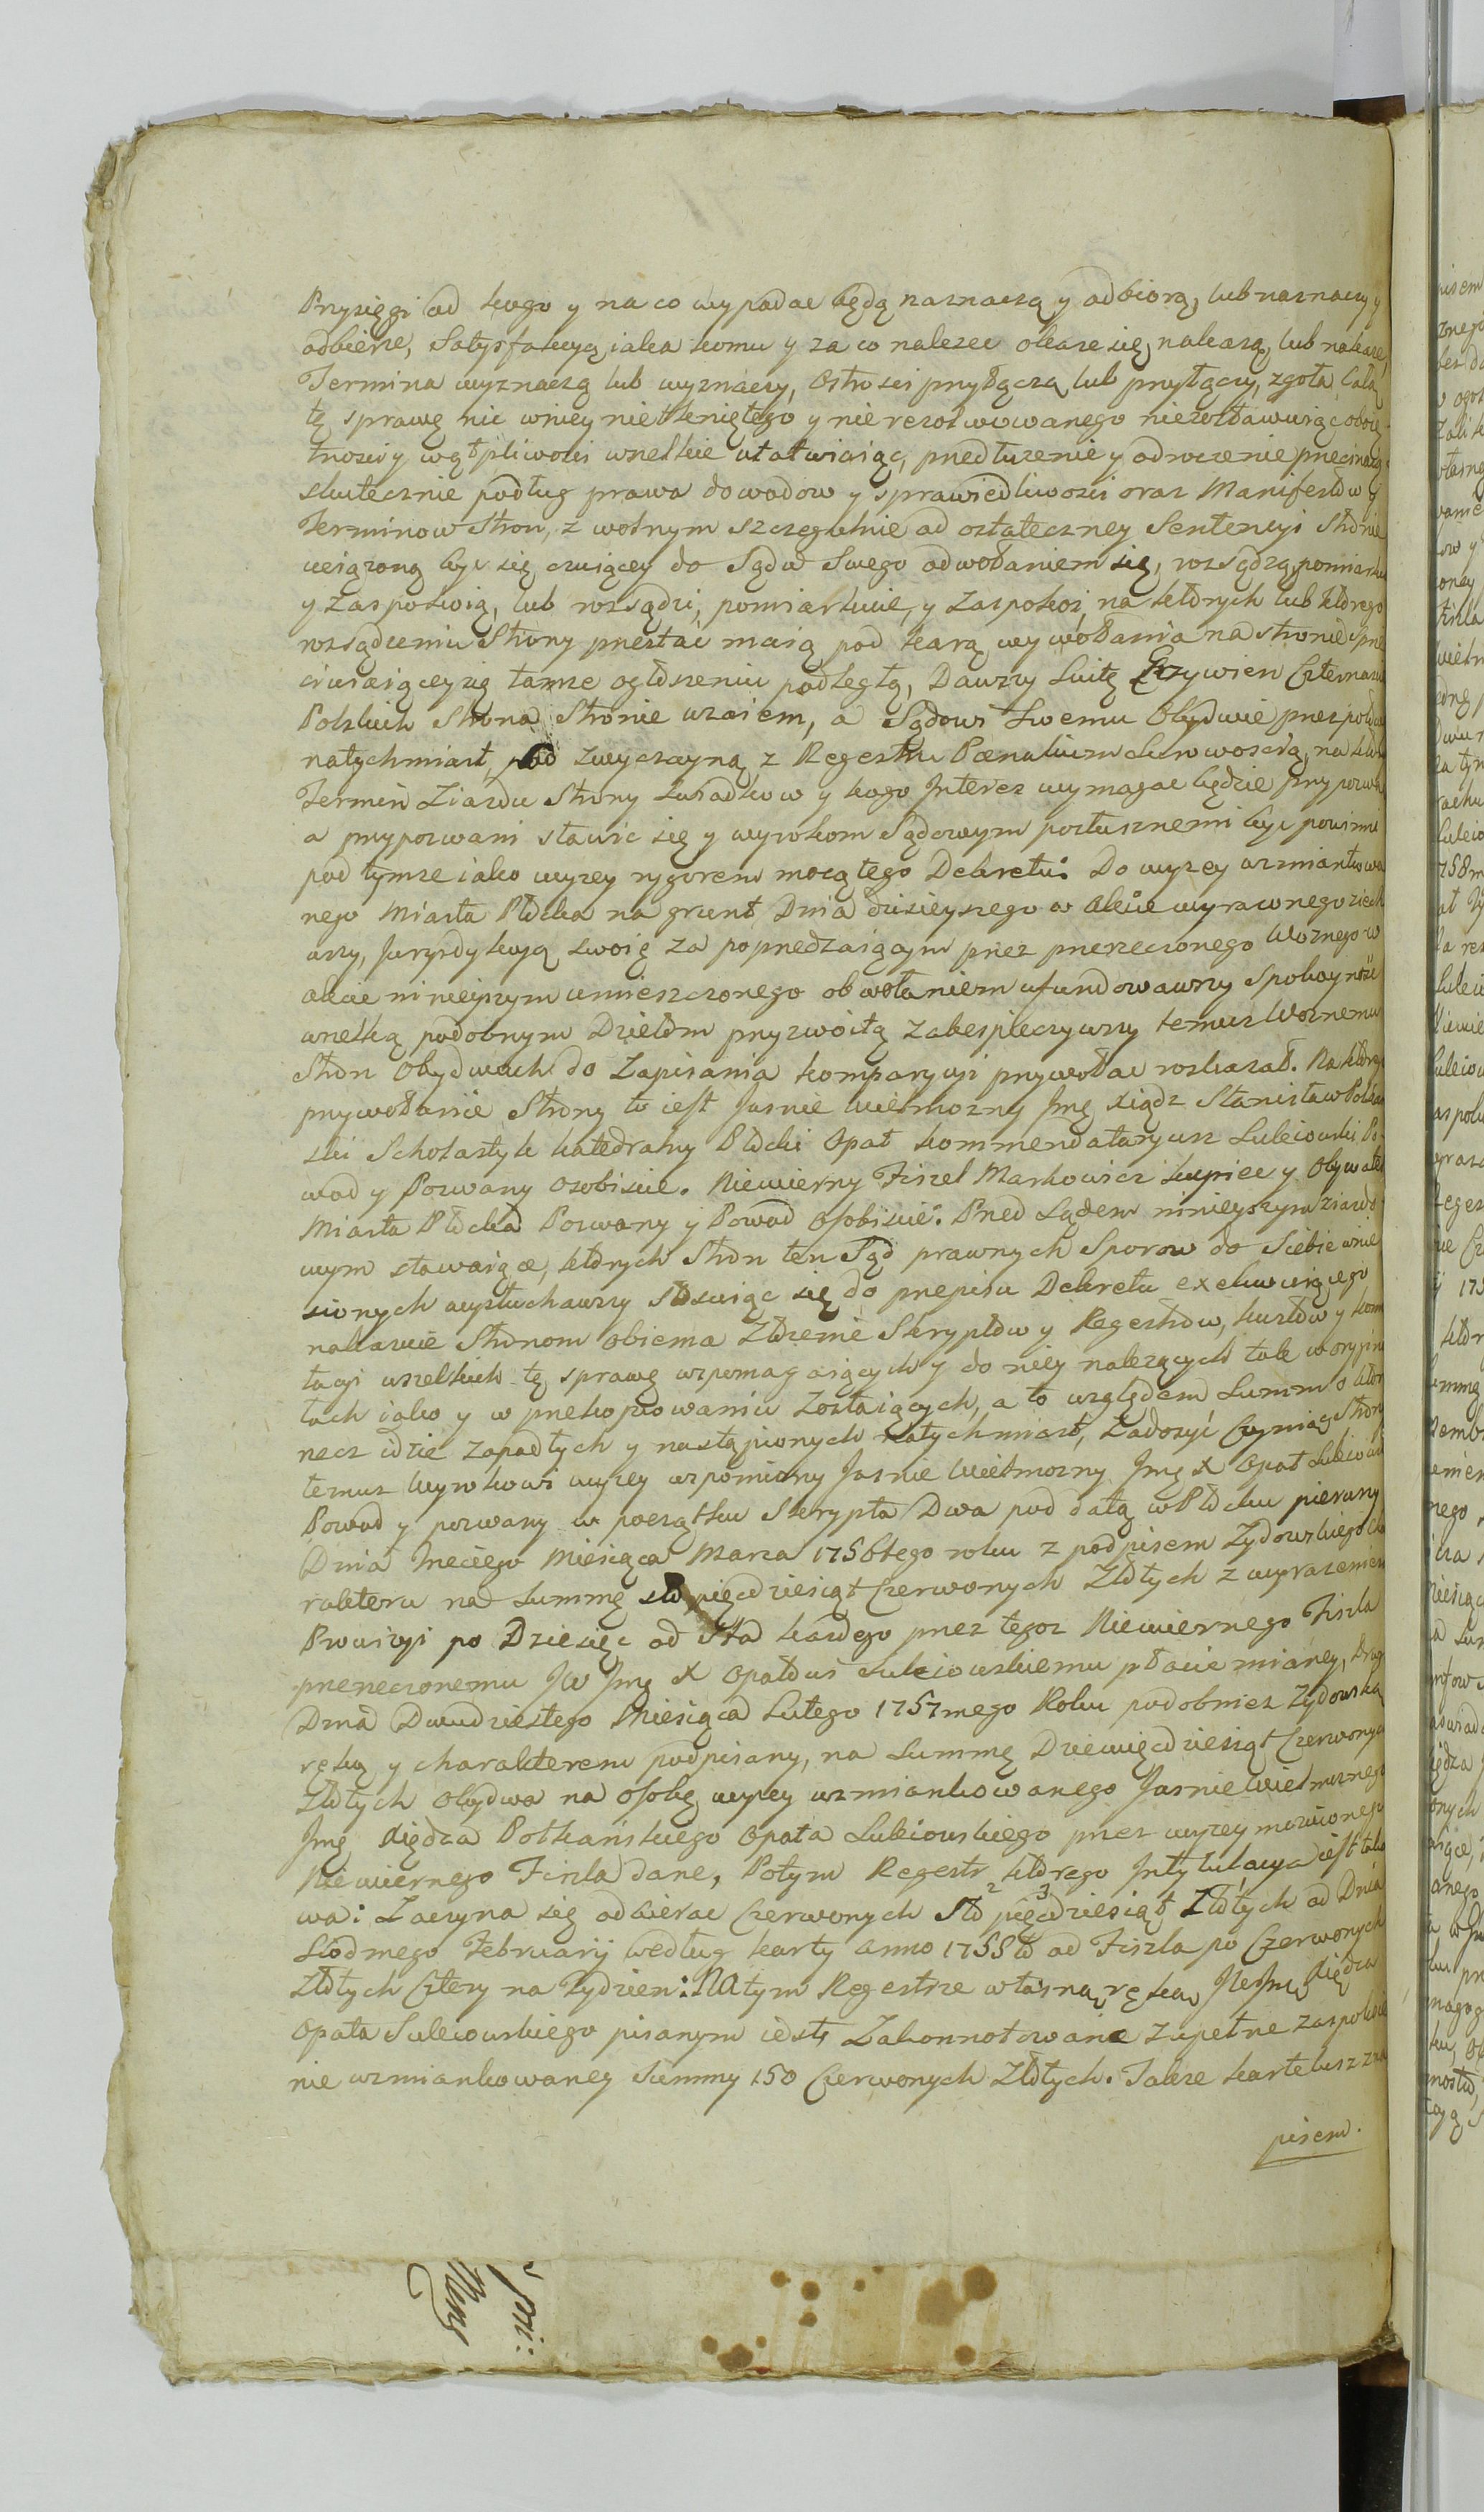 Przysięgi od kogo y na co wypadać będą naznaczą y odbiorą, lub naznaczy y
odbierze, Satysfakcyą iaka komu y za co należeć okaże się, nakażą, lub nakaże,
Termina wyznaczą lub wyznaczy, Ostrości przyłączą lub przyłączy, zgoła całą
tę sprawę nic wniey nietkniętego y nie rezolwowanego niezostawuiąc oboię-
tności y wątpliwości wszelkie ułatwiaiąc, przedłużenie y odwłoczenie przecinaiąc
skutecznie podług prawa dowodow y sprawiedliwości oraz Manifestów y
Terminow Stron, z wolnym szczegulnie od ostateczney Sentencyi Stronie
uciążoną być się czuiącey do Sądu Swego odwołaniem się, rozsądzą, pomiarkuią
y zaspokoią, lub rozsądzi, pomiarkuie, y zaspokoi, na których lub którego
rozsądzeniu Strony przestać maią pod karą wywołania na stronie sprze
ciwiaiącey się tamże ogłoszeniu podległą, Dawszy Luitę Grzywien Czternaście
Polskich Strona Stronie wzaiem, a Sądowi Swemu Obydwie przez połowę
natychmiast, pod zwyczayną z Regestru Pœnalium surowością, na który
Termin Ziazdu Strony Swiadkow y kogo Interes wymagać będzie przypozwą
a przypozwani stawić się y wyrokom Sądowym posłusznemi być powinni
pod tymże iako wyżey rygorem mocą tego Dekretu: Do wyżey wzmiankowa
nego Miasta Płocka na grunt Dnia dzisieyszego w Akcie wyrażonego ziech
awszy, Juryzdykcyą swoię za poprzedzaiącym przez przerzeczonego Woznego w
akcie ninieyszym umieszczonego obwołaniem ufundowawszy Spokoyność
wszelką podobnym Dziełom przyzwoitą zabespieczywszy temuż Woznemu
Stron Obydwuch do Zapisania komparycyi przywołać rozkazał. Na którego
przywołanie Strony to iest Jasnie Wielmozny Jmę Xiądz Stanisław Potkań
ski Scholastyk katedralny Płocki Opat kommendataryusz Sulejowski Po-
wod y Pozwany osobiscie. Niewierny Fiszel Markowicz kupiec y Obywatel
Miasta Płocka Pozwany y Powod Osobiscie. Przed Sądem ninieyszym ziazdo-
wym stawaiące, których Stron ten Sąd prawnych Sporow do Siebie wnie
sionych wysłuchawszy stosuiąc się do przepisu Dekretu exekwuiącego
nakazuie Stronom obiema złożenie Skryptów y Regestrów, kwitów y kom
tacyi wszelkich tę sprawę wspomagaiących y do niey należących tak w orygina
łach iako y w przekopiowaniu zostaiących, a to względem Summ o które
rzecz idzie zapadłych y nastąpionych natychmiast, Zadosyć czyniąc Strony
temuż Wyrokowi wyżey wspomiony Jasnie Wielmozny Jmę X Opat Suleiowski
Powod y pozwany w początku Skrypta Dwa pod datą w Płocku pierwszy
Dnia Trzeciego Miesiąca Marca 1756tego roku z podpisem Zydowskiego cha
rakteru na Summę sto pięcdziesiąt Czerwonych Złotych z wyrażeniem
Prowizyi po Dziesięc od Sta każdego przez tegoż Niewiernego Fiszla
przerzeczonemu JW Jmę X Opatowi Suleiowskiemu płacić mianey, drugi
Dnia Dwudziestego Miesiąca Lutego 1757mego Roku podobnież Zydowską
ręką y charakterem podpisany, na Summę Dziewięcdziesiąt Czerwonych
Złotych obydwa na osobę wyżey wzmiankowanego Jasnie Wielmożnego
Jmę Xiędza Potkańskiego Opata Suleiowskiego przez wyżey mowionego
Niewiernego Fiszla dane, Potym Regestr którego Intytulacya iest tako
wa: Zaczyna się odbierać Czerwonych Sto 2 pięćdziesiąt 3 Złotych od Dnia
Siodmego Februarij według karty Anno 1758to od Fiszla po Czerwonych
Złotych Cztery na Tydzien: Na tym Regestrze własną ręką JW Jmę Xiędza
Opata Suleiowskiego pisanym iest Zakonnotowanie zupełne zaspokoie
nie wzmiankowaney Summy 150 Czerwonych Złotych. Także kartelusz z na
pisem.